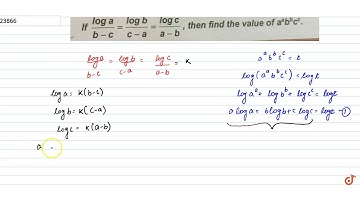 23866
If log a/b−c = log b/c−a = log c/a−b, then find the value of aᵃbᵇcᶜ.
log a/b−c = log b/c−a = log c/a−b = K
log a = K(b−c)
log b = K(c−a)
log c = K(a−b)
a
aᵃ bᵇ cᶜ = t
log(aᵃ bᵇ cᶜ) = log t
log aᵃ + log bᵇ + log cᶜ = log t
a log a + b log b + c log c = log t −①